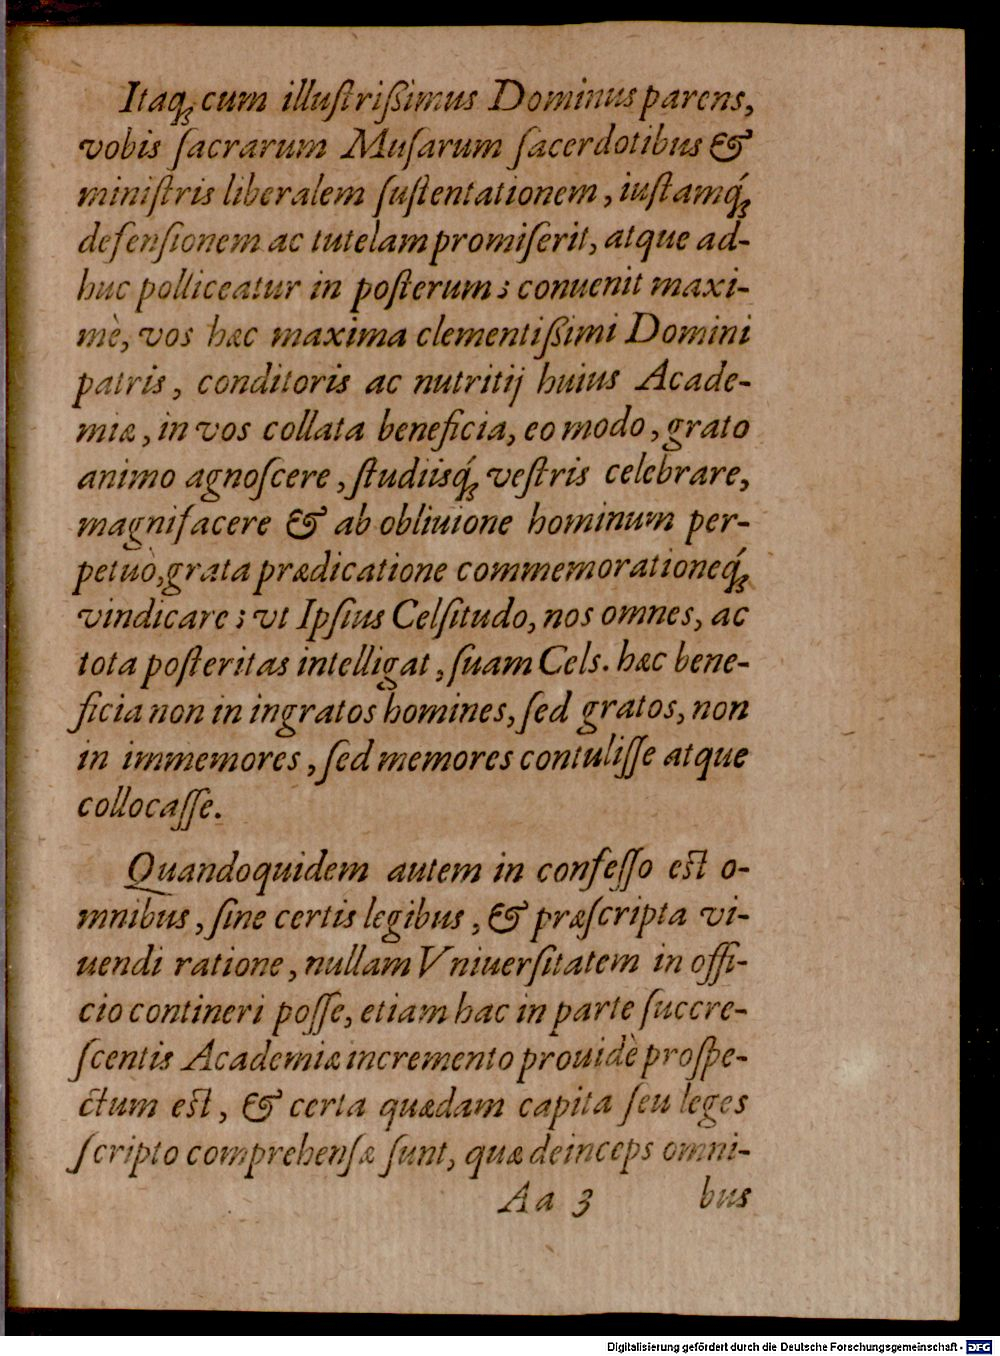 Itaq́ꝫ cum illuſtriſsimus Dominus parens,
vobis ſacrarum Muſarum ſacerdotibus &
miniſtris liberalem ſuſtentationem, iuſtamq́ꝫ
defenſionem ac tutelam promiſerit, atque ad-
huc polliceatur in poſterum; conuenit maxi-
mè, vos hæc maxima clementiſsimi Domini
patris, conditoris ac nutritij huius Acade-
miæ, in vos collata beneficia, eo modo, grato
animo agnoſcere, ſtudiisq́ꝫ veſtris celebrare,
magnifacere & ab obliuione hominum per-
petuò, grata prædicatione commemorationeq́ꝫ
vindicare; vt Ipſius Celſitudo, nos omnes, ac
tota poſteritas intelligat, ſuam Cels. hæc bene-
ficia non in ingratos homines, ſed gratos, non
in immemores, ſed memores contuliſſe atque
collocaſſe.
Quandoquidem autem in confeſſo eſt o-
mnibus, ſine certis legibus, & præſcripta vi-
uendi ratione, nullam Vniuerſitatem in offi-
cio contineri poſſe, etiam hac in parte ſuccre-
ſcentis Academiæ incremento prouidè proſpe-
ctum eſt, & certa quædam capita ſeu leges
ſcripto comprehenſæ ſunt, quæ deinceps omni-
Aa 3 bus
Digitalisierung gefördert durch die Deutsche Forschungsgemeinschaft - DFG